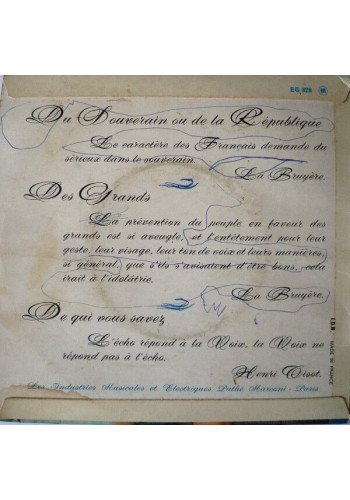 EG 825 M
Du Souverain ou de la République
Le caractère des Français demande du
sérieux dans le souverain.
La Bruyère.
Des Grands
La prévention du peuple en faveur des
grands est si aveugle, et l'entêtement pour leur
geste, leur visage, leur ton de voix et leurs manières,
si général, que s'ils s'avisaient d'être bons, cela
irait à l'idolâtrie.
La Bruyère.
De qui vous savez
L'écho répond à la Voix, la Voix ne
répond pas à l'écho.
Henri Tisot.
Les Industries Musicales et Electriques Pathé Marconi - Paris
MADE IN FRANCE